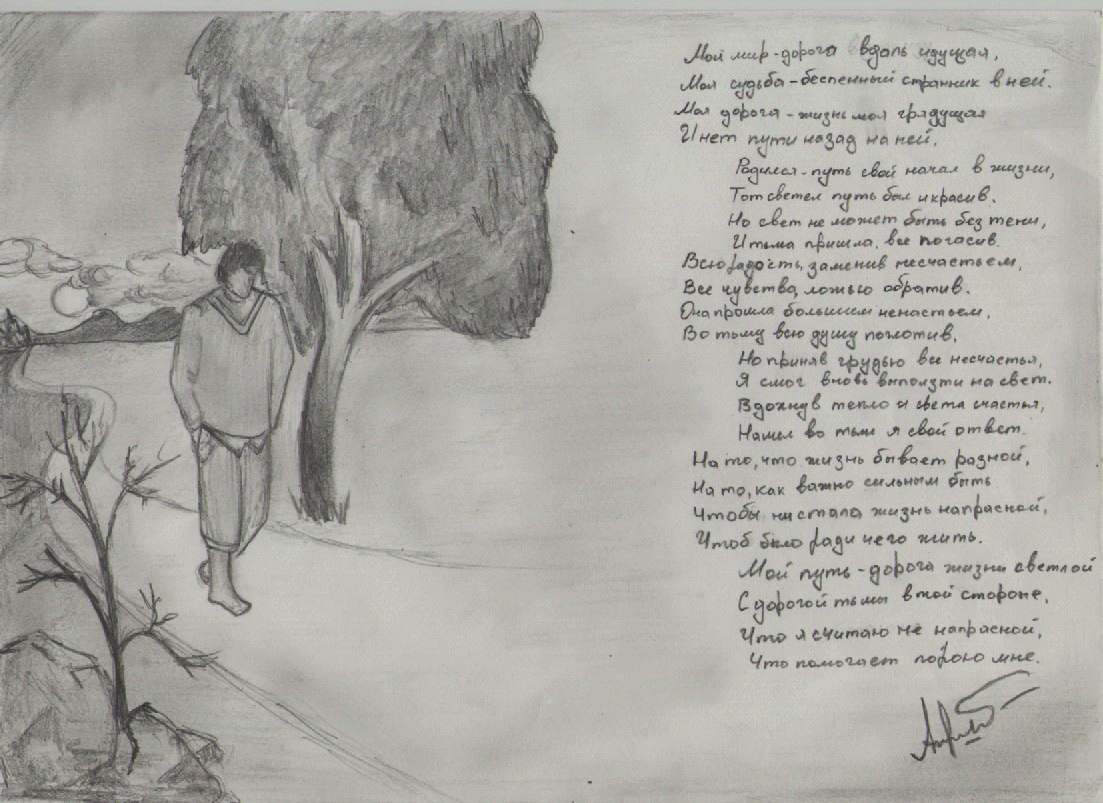 Мой мир-дорога вдаль идущая,
Моя судьба-беспенный странник в ней.
Моя дорога-жизнь моя грядущая
И нет пути назад на ней.
Родился-путь свой начал в жизни,
Тот светел путь был и красив.
Но свет не может быть без тени,
И тьма пришла, все погасив.
Всю радость, заменив несчастьем,
Все чувства, ложью обратив.
Она прошла большим ненастьем,
Во тьму всю душу поглотив,
Но приняв грудью все несчастья,
Я смог вновь выползти на свет.
Вдохнув тепло и света счастья,
Нашел во тьме я свой ответ.
На то, что жизнь бывает разной,
На то, как важно сильным быть
Чтобы не стала жизнь напрасной,
Чтоб было ради чего жить.
Мой путь-дорога жизни светлой
С дорогой тьмы в той стороне,
Что я считаю не напрасной,
Что помогает порою мне.